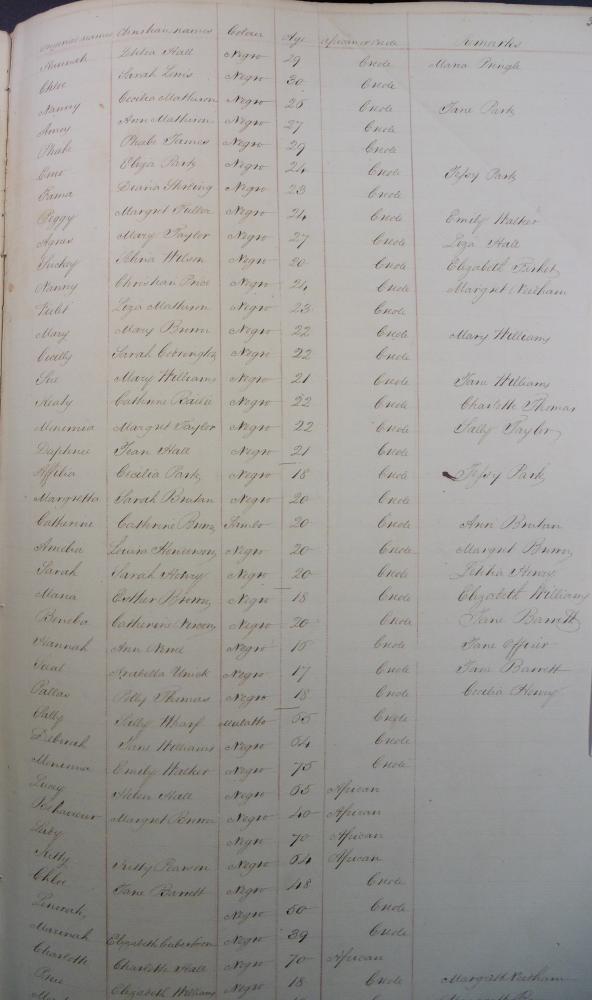 Original names Christian names Colour Age African or Creole Remarks
Hannah Letitia Hall Negro 29 Creole Maria Pringle
Chloe Sarah Lewis Negro 30 Creole
Nanny Cecilia Mathison Negro 26 Creole Jane Park
Amey Ann Mathison Negro 27 Creole
Phebe Phebe James Negro 29 Creole
Eliza Park Negro 24 Creole Jessy Park
Diana Stirling Negro 23 Creole
Peggy Margret Fuller Negro 24 Creole Emily Walker
Agnes Mary Taylor Negro 27 Creole Liza Hall
Suckey Selina Wilson Negro 20 Creole Elizabeth
Nanny Christian Price Negro 24 Creole Margret Needham
Violet Liza Mathison Negro 23 Creole
Mary Mary Brown Negro 22 Creole Mary Williams
Cecilly Sarah Codrington Negro 22 Creole
Sue Mary Williams Negro 21 Creole Jane Williams
Keaty Catherine Bailie Negro 22 Creole Charlotte Thomas
Minemia Margret Taylor Negro 22 Creole Sally Taylor
Daphnee Jean Hall Negro 21 Creole
Affilia Cecilia Park Negro 18 Creole Jessy Park
Margretta Sarah Bratan Negro 20 Creole
Catherine Catherine Brown Sambo 20 Creole Ann Bratan
Amelia Louisa Henderson Negro 20 Creole Margret Brown
Sarah Sarah Henry Negro 20 Creole Letitia Henry
Maria Esther Brown Negro 18 Creole Elizabeth Williams
Beneba Catherine Negro 20 Creole Jane Barrett
Hannah Ann Negro 15 Creole Jane Officer
Arabella Negro 17 Creole Jane Barrett
Pallas Polly Thomas Negro 18 Creole Cecilia Henry
Sally Sally Wharf Mulatto 55 Creole
Deborah Jane Williams Negro 54 Creole
Minemia Emily Walker Negro 75 Creole
Lucey Helen Hall Negro 65 African
Margret Brown Negro 40 African
Negro 70 African
Kitty Kitty Pearson Negro 54 African
Chloe Jane Barrett Negro 48 Creole
Lenorah Negro 50 Creole
Marinah Elizabeth Negro 39 Creole
Charlotte Charlotte Hall Negro 70 African
Elizabeth Williams Negro 18 Creole Margret Needham